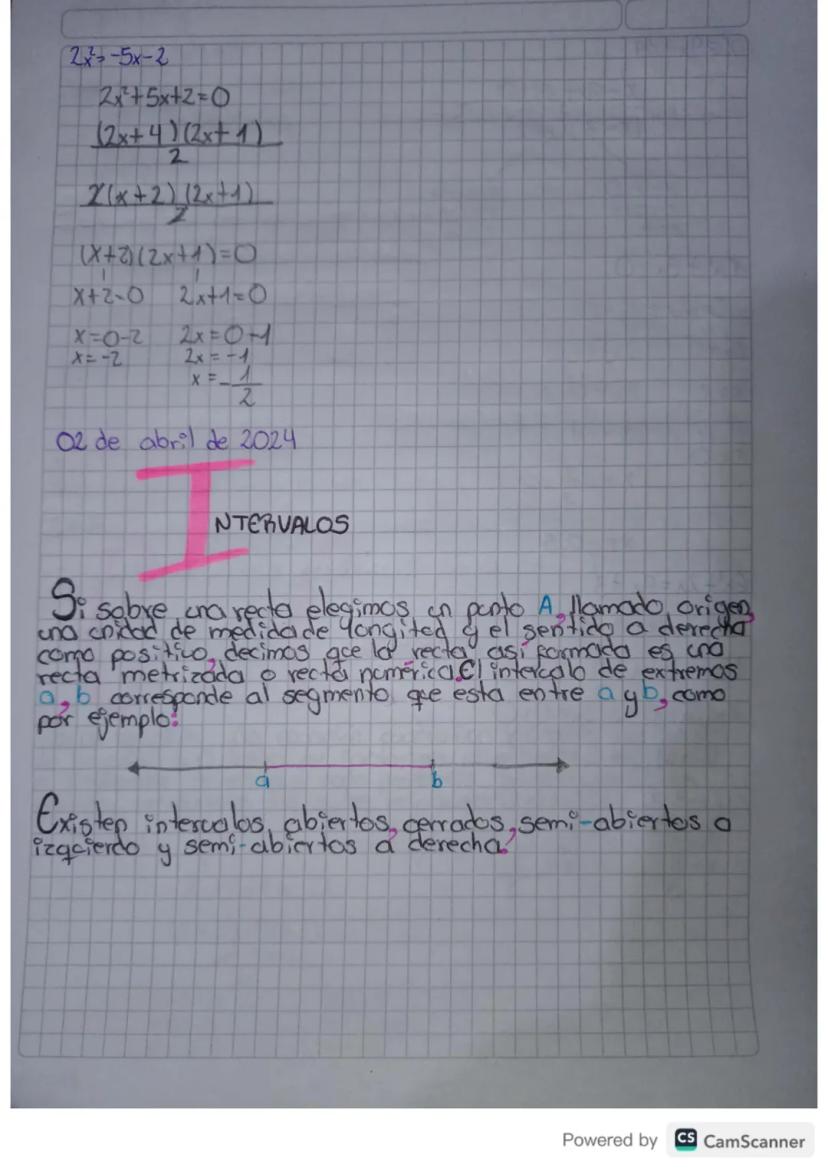 2x²=-5x-2
2x²+5x+2=0
(2x+4)(2x+1)
2
2(x+2)(2x+1)
2
(x+2)(2x+1)=0
x+2=0 2x+1=0
x=0-2 2x=0-1
x=-2 2x=-1
x=-1
2
02 de abril de 2024
INTERVALOS
Si sobre una recta elegimos un punto A, llamado origen,
una unidad de medida de longitud y el sentido a derecha
como positivo, decimos que la recta asi formada es una
recta metrizada o recta numérica. El intervalo de extremos
a, b corresponde al segmento que esta entre a y b, como
por ejemplo:
a b
Existen intervalos abiertos, cerrados, semi-abiertos a
izquierdo y semi-abiertos a derecha.
Powered by CS CamScanner